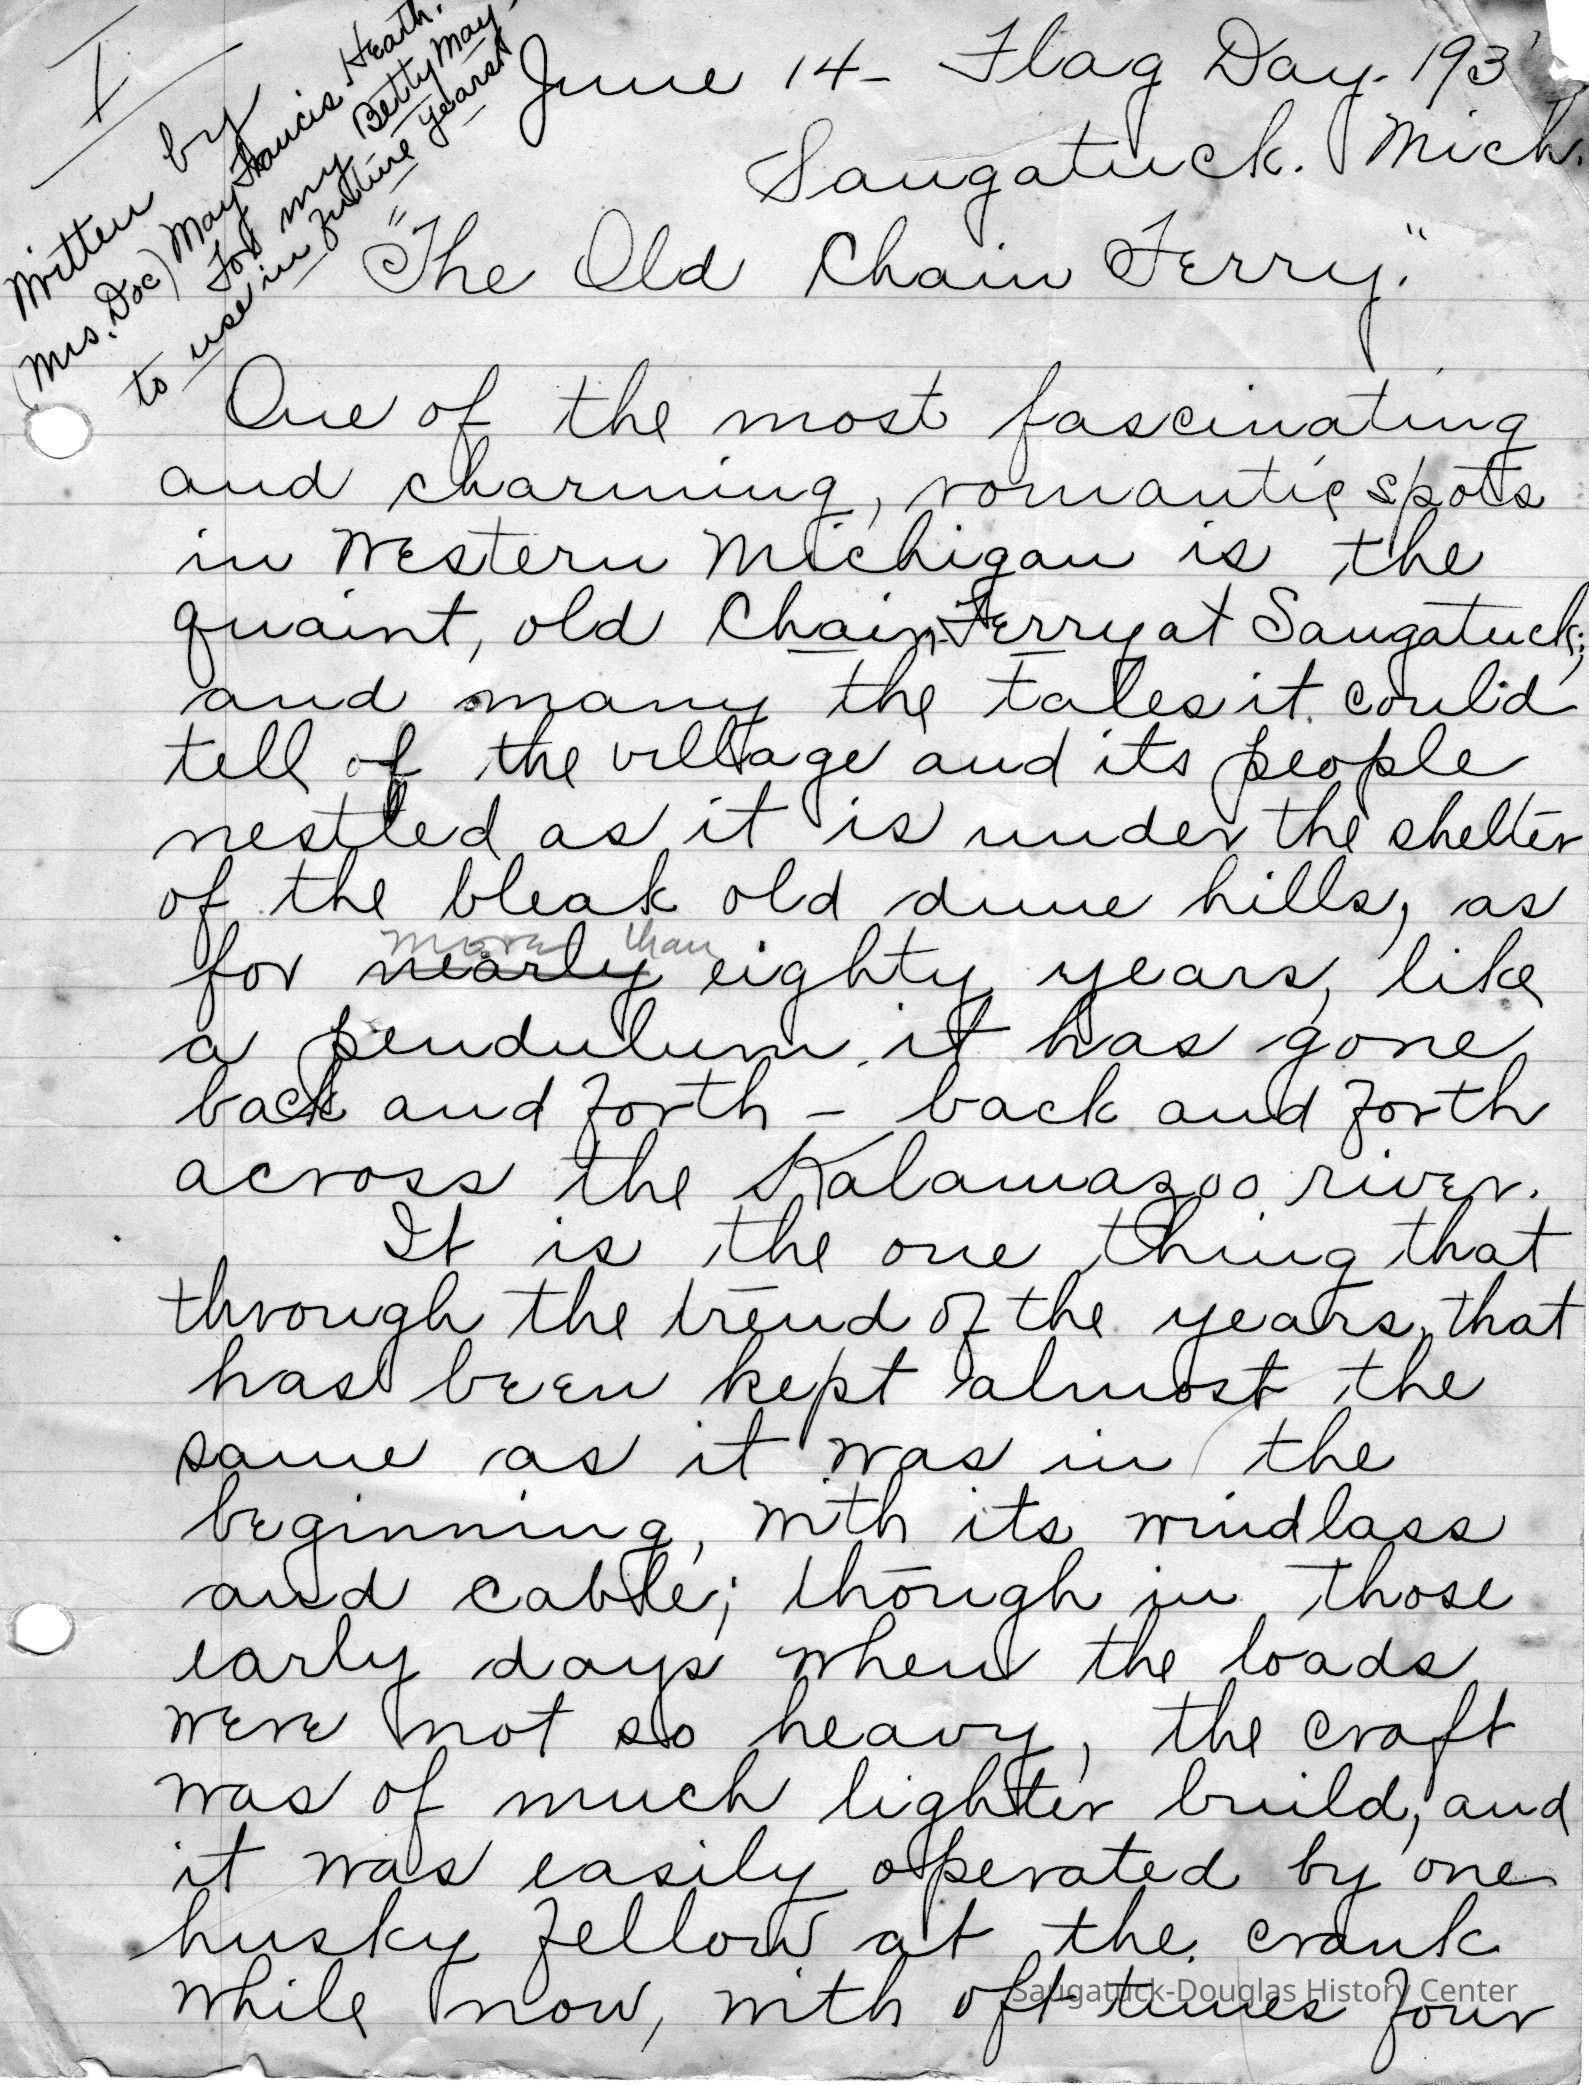 I
Written by
(Mrs. Doc) May Francis Heath.
For my Betty May -
to use in future years
June 14 - Flag Day. 193
Saugatuck. Mich.
"The Old Chain Ferry."
One of the most fascinating
and charming, romantic spots
in Western Michigan is the
quaint, old Chain Ferry at Saugatuck;
and many the tales it could
tell of the village and its people
nestled as it is under the shelter
of the bleak old dune hills, as
more than
for nearly eighty years, like
a pendulum it has gone
back and forth - back and forth
across the Kalamazoo river.
It is the one thing that
through the trend of the years, that
has been kept almost the
same as it was in the
beginning, with its windlass
and cable; though in those
early days when the loads
were not so heavy, the craft
was of much lighter build, and
it was easily operated by one
husky fellow at the crank
while now, with oft times four
Saugatuck-Douglas History Center